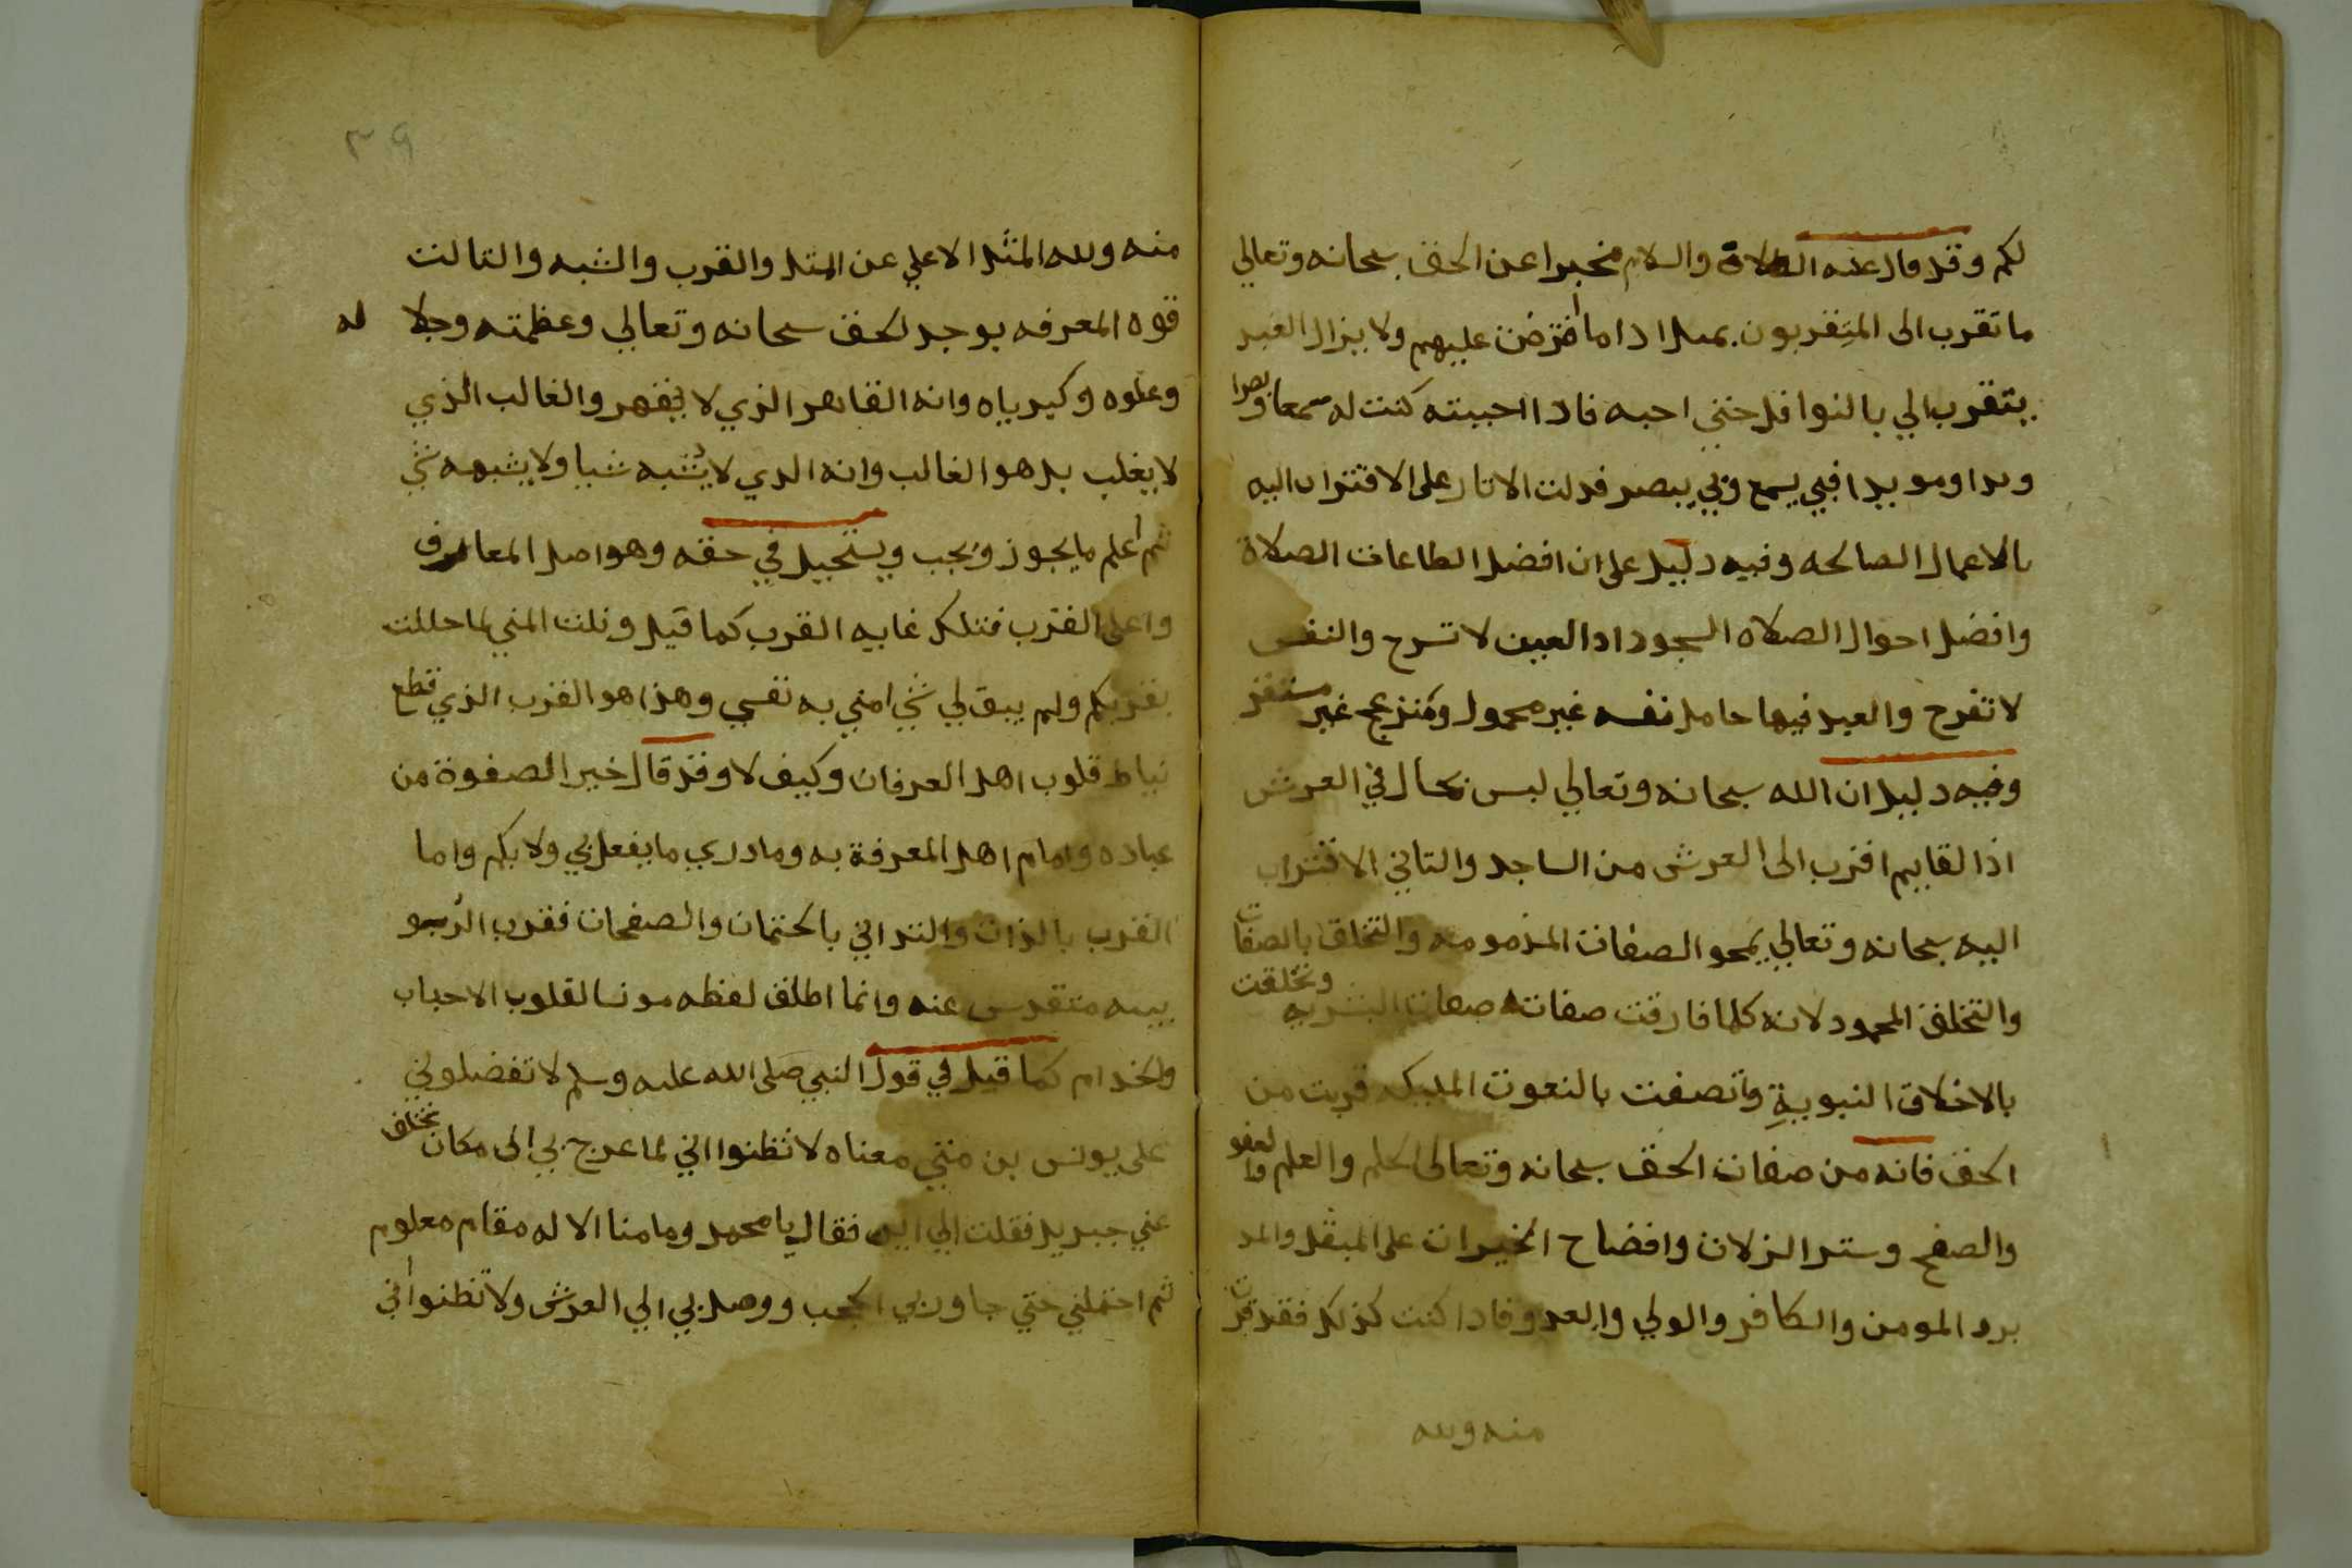 لكم وقد قال عنه الصلاة والسلام مخبرا عن الحق سبحانه وتعالى
ما تقرب الى المتقربون بمثل اداما افترضت عليهم ولا يزال العبد
يتقرب الي بالنوافل حتى احبه فاذا احببته كنت له سمعا وبصرا
ويدا ومويدا فبي يسمع وبي يبصر فدلت الاثار على الاقتراب اليه
بالاعمال الصالحه وفيه دليل على ان افضل الطاعات الصلاة
وافضل احوال الصلاه السجود اذ العين لا تسرح والنفس
لا تفرح والعبد فيها حامل نفسه غير محمول ومنزعج غير مستقر
وفيه دليل ان الله سبحانه وتعالي ليس بحال في العرش
اذ القايم اقرب الى العرش من الساجد والثاني الاقتراب
اليه سبحانه وتعالي بمحو الصفات المذمومه والتخلق بالصفات
والتخلق المحمود لانه كلما فارقت صفاته صفات البشريه وتخلقت
بالاخلاق النبوية واتصفت بالنعوت الملكيه قربت من
الحق فانه من صفات الحق سبحانه وتعالى الحلم والعلم والعفو
والصفح وستر الزلات وافضاح الخيرات على المقبل والمد
برد المومن والكافر والولي والعدو فاذا كنت كذلك فقد قربت
منه ولله
٣٩
منه ولله المثل الاعلي عن المثل والقرب والشبه والثالث
قوه المعرفه بوجد لحق سبحانه وتعالي وعظمته وجلا له
وعلوه وكبرياه وانه القاهر الذي لا يقهر والغالب الذي
لا يغلب بل هو الغالب وانه الذي لا يشبه شيا ولا يشبهه شي
ثم اعلم ما يجوز ويجب ويستحيل في حقه وهو اصل المعارف
واعلى القرب فتلك غايه القرب كما قيل ونلت المني لما حللت
بقربكم ولم يبق لي شي امني به نفسي وهذا هو القرب الذي قطع
نياط قلوب اهل العرفان وكيف لا وقد قال خير الصفوة من
عباده وامام اهل المعرفة به وما دري ما يفعل بي ولا بكم واما
القرب بالذات والتداني بالجثمان والصفحات فقرب الربو
بيه متقدس عنه وانما اطلق لفظه مونسا لقلوب الاحباب
والخدام كما قيل في قول النبي صلى الله عليه وسلم لا تفضلوني
على يونس بن متي معناه لا تظنوا اني لما عرج بي الى مكان تخلف
عني جبريل فقلت الي اين فقال يا محمد وما منا الا له مقام معلوم
ثم احتملني حتي جاوزبي الحجب ووصل بي الي العرش ولا تظنوا اني